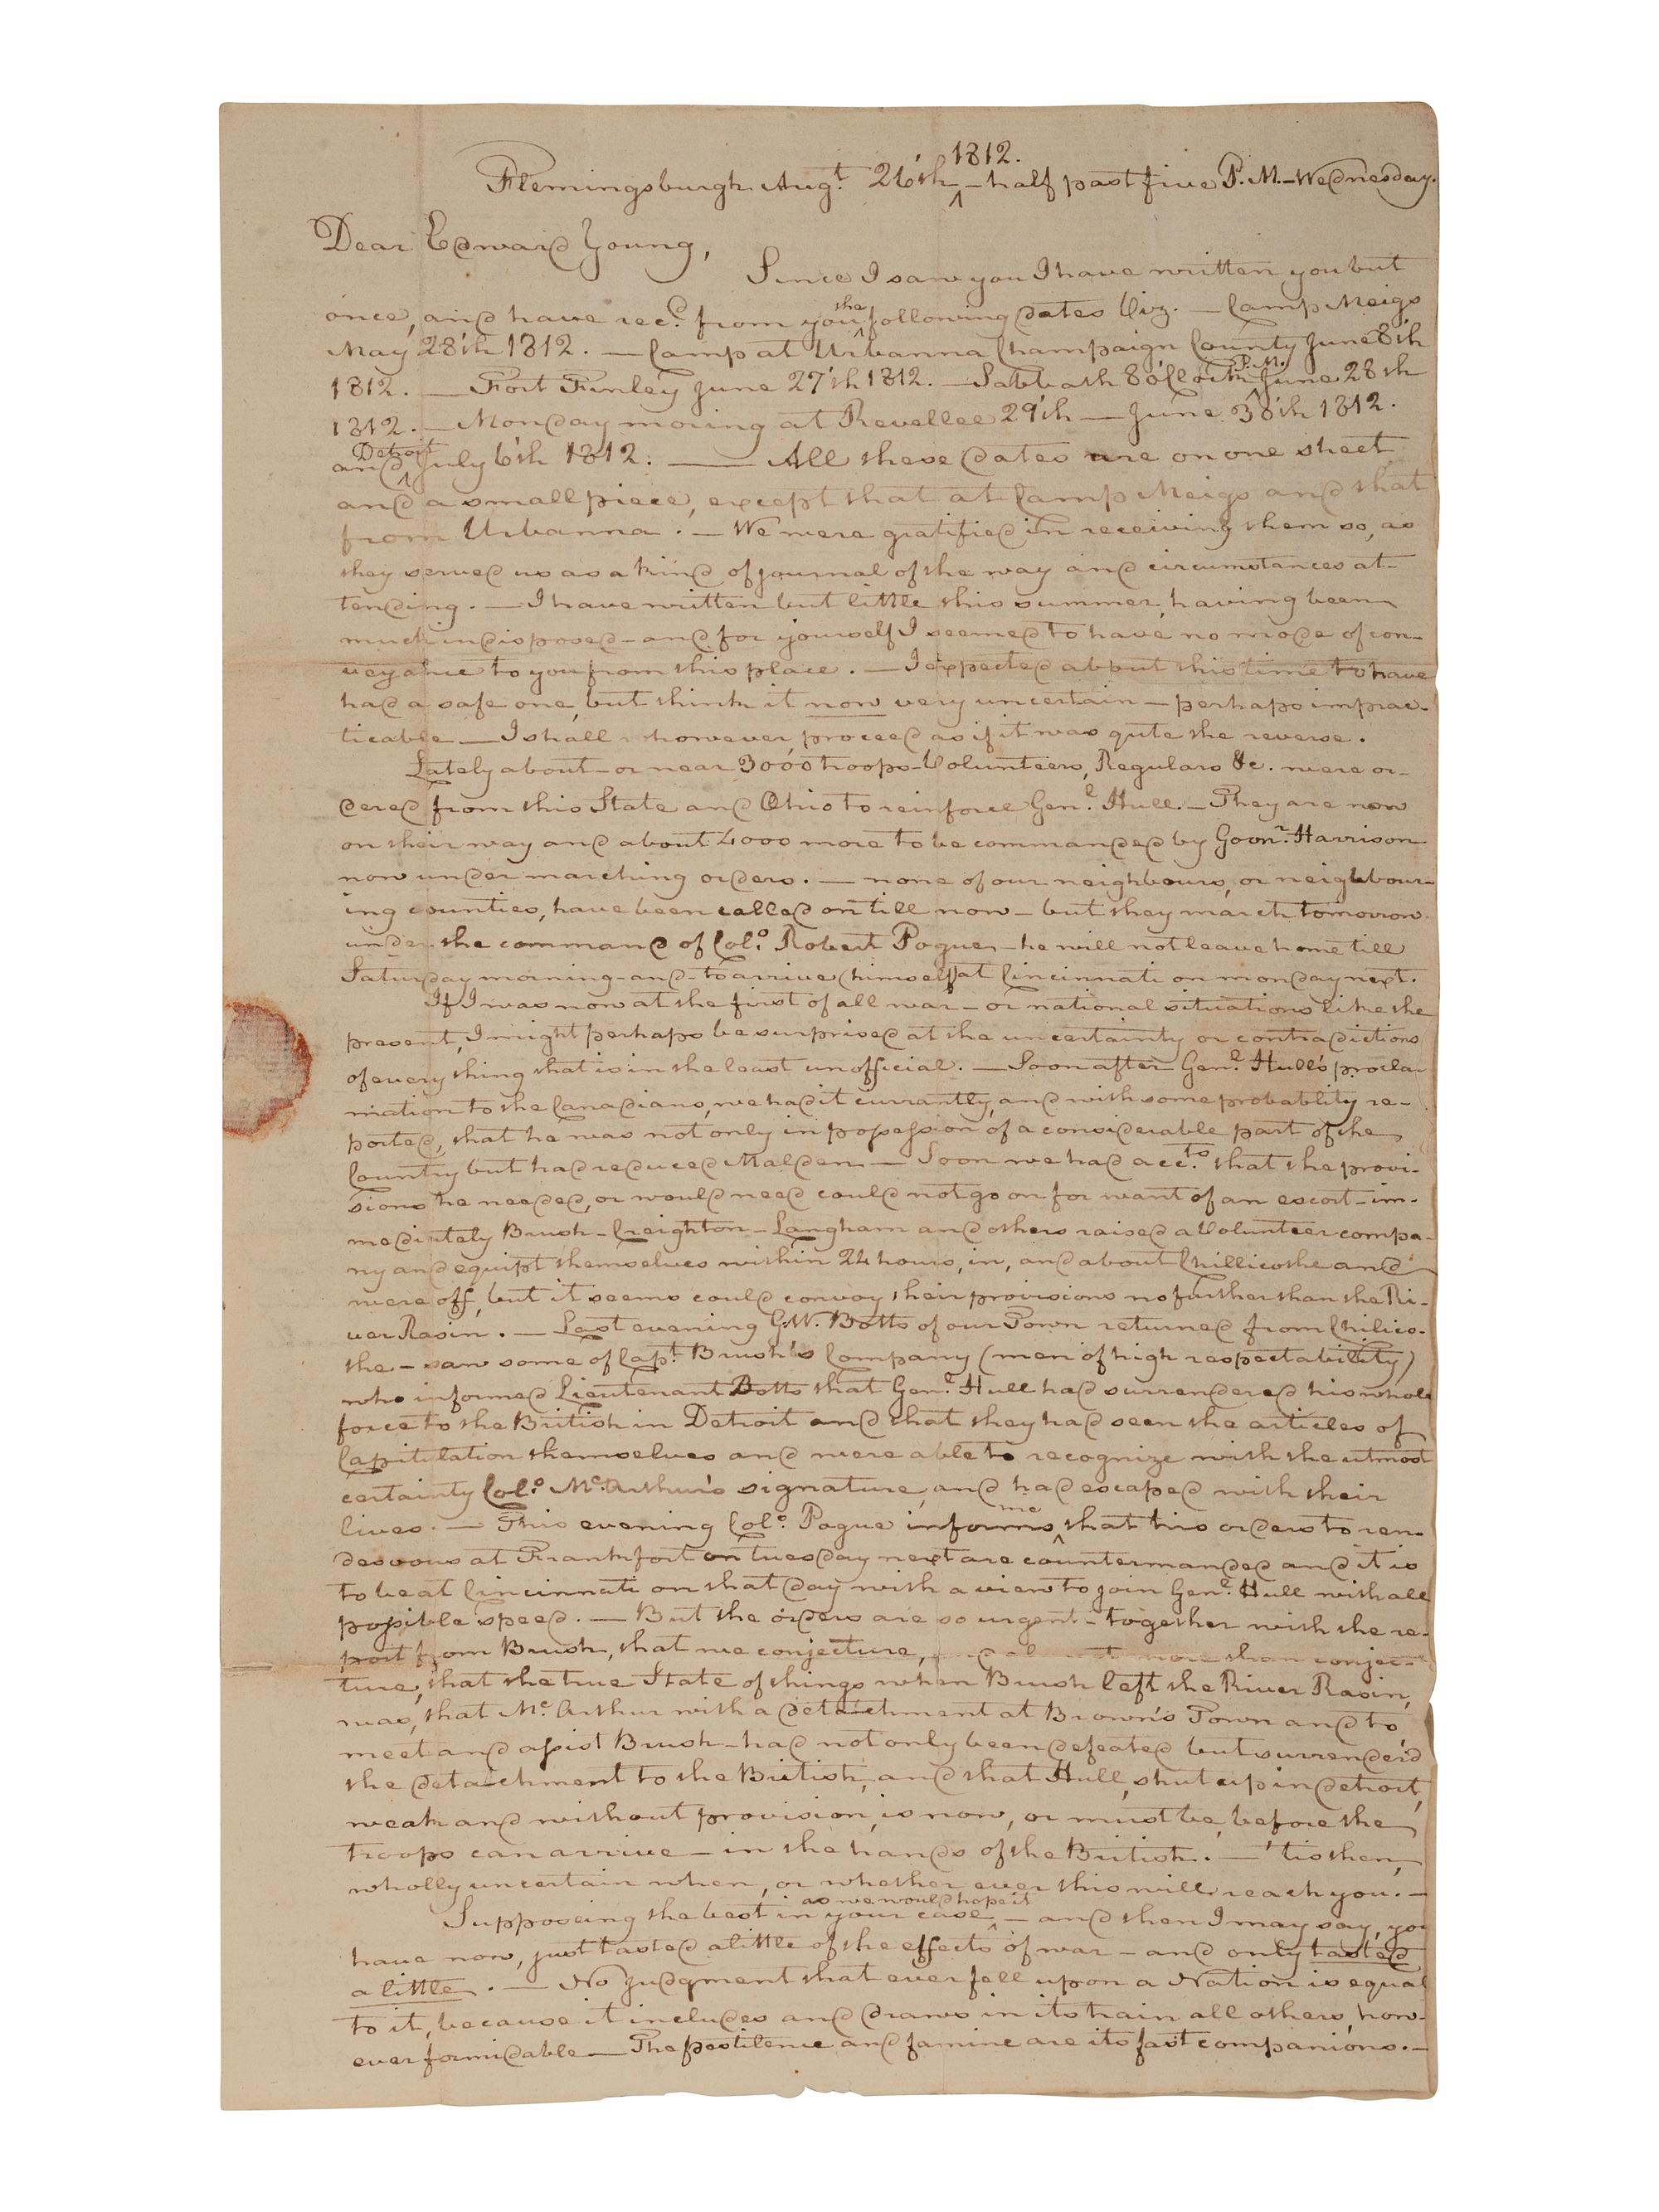 1812.
Flemingsburgh Augt. 26'th ^ – half past five P.M. – Wednesday.
Dear Edward Young,
Since I saw you I have written you but
the
once, and have recd. from you ^ following dates Viz. — Camp Meigs
May 28'th 1812. — Camp at Urbanna Champaign County June 8'th
P.M.
1812. — Fort Finley June 27'th 1812. — Sabbath 8 o'Clock ^ June 28th
1812. — Monday moring at Revellee 29'th — June 30'th 1812.
Detroit
and ^ July 6'th 1812. — All these dates are on one sheet
and a small piece, except that at Camp Meigs and that
from Urbanna. — We were gratified in receiving them so, as
they served us as a kind of journal of the way and circumstances at-
tending. — I have written but little this summer, having been
much indisposed – and for yourself I seemed to have no mode of con-
veyance to you from this place. — I expected about this time to have
had a safe one, but think it now very uncertain – perhaps imprac-
ticable — I shall however, proceed as if it was qute the reverse.
Lately about – or near 3000 troops – Volunteers, Regulars &c. were or-
dered from this State and Ohio to reinforce Genl. Hull. — They are now
on their way and about 4000 more to be commanded by Goonr. Harrison
now under marching orders. — none of our neighbours, or neighbour-
ing counties, have been called on till now – but they march tomorrow
under the command of Colo. Robert Pogue, – he will not leave home till
Saturday morning – and – to arrive (himself) at Cincinnati on monday next.
If I was now at the first of all war – or national situations like the
present, I might perhaps be surprised at the uncertainty or contradictions
of every thing that is in the least unofficial. — Soon after Genl. Hull's procla-
mation to the Canadians, we had it currantly, and with some probablity re-
ported, that he was not only in possession of a considerable part of the
Country but had reduced Malden — Soon we had accts. that the provi-
sions he needed, or would need could not go on for want of an escort – im-
mediately Brush – Creighton – Langham and others raised a Volunteer compa-
ny and equipt themselves within 24 hours, in, and about Chillicothe and
were off, but it seems could convoy their provisions no further than the Ri-
ver Rasin. — Last evening G.W. Botts of our Town returned from Chilico-
the – saw some of Capt. Brush's Company (men of high respectability)
who informed Lieutenant Botts that Genl. Hull had surrendered his whole
force to the British in Detroit and that they had seen the articles of
Capitulation themselves and were able to recognize with the utmost
certainty Colo. Mc.Arthur's signature, and had escaped with their
me
lives. — This evening Colo. Pogue informs ^ that his orders to ren-
desvous at Frankfort on tuesday next are countermanded and it is
to be at Cincinnati on that day with a view to join Genl. Hull with all
possible speed. — But the orders are so urgent – together with the re-
port from Brush, that we conjecture, and almost more than conjec-
ture, that the true State of things when Brush left the River Rasin,
was, that Mc.Arthur with a detachment at Brown's Town and to
meet and assist Brush – had not only been defeated but surrender'd
the detachment to the British, and that Hull, shut up in detroit,
weak and without provision, is now, or must be, before the
troops can arrive – in the hands of the British. — 'tis then,
wholly uncertain when, or whether ever this will reach you. —
as we would hope it
Supposeing the best in your case ^ – and then I may say, you
have now, just tasted a little of the effects of war – and only tasted
a little. — No Judgment that ever fell upon a Nation is equal
to it, because it includes and draws in its train all others, how-
ever formidable — The pestilence and famine are its fast companions. —